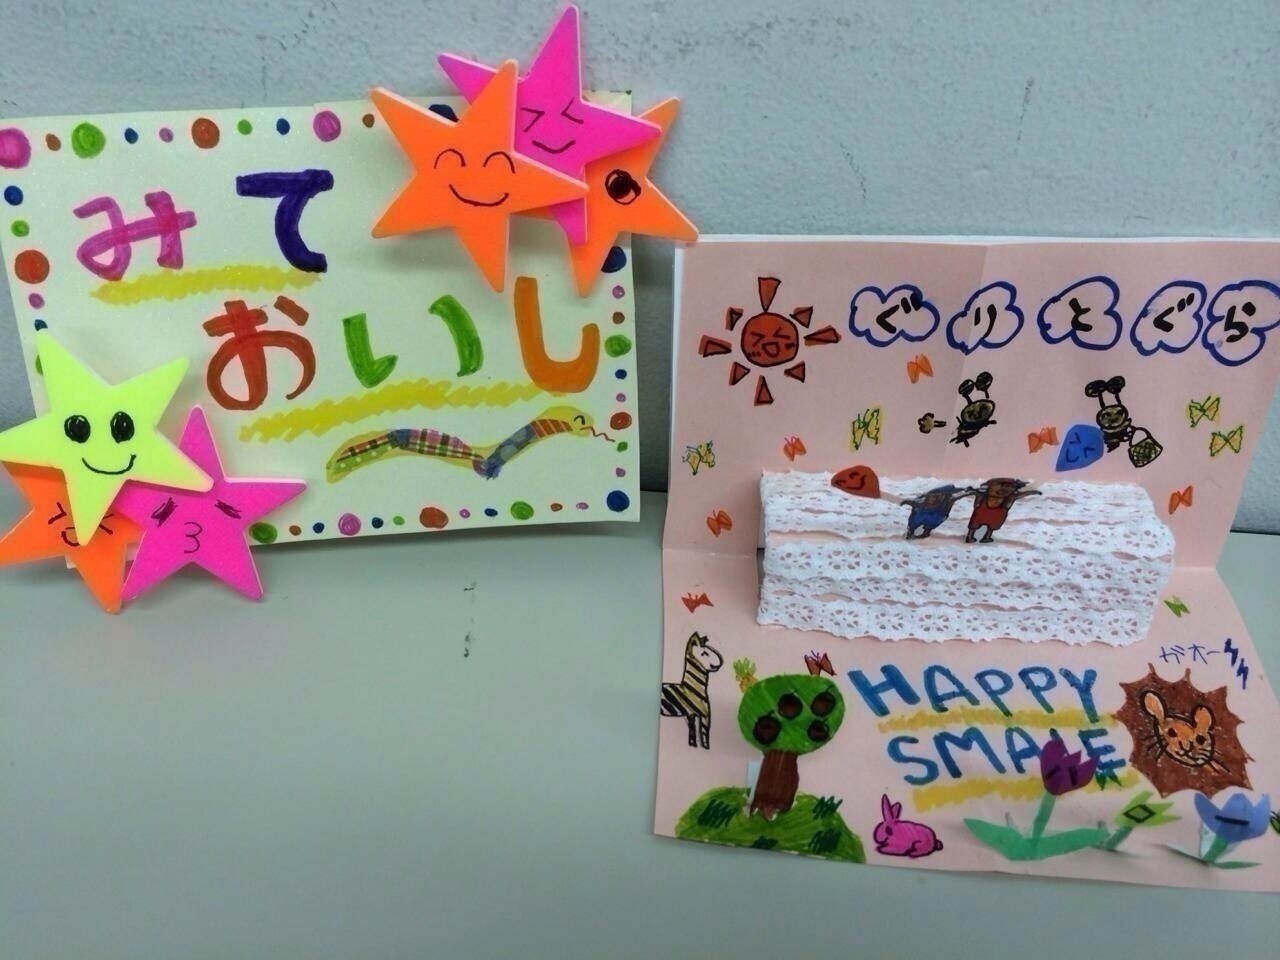 みて
おいし
ぐりとぐら
ガオー
HAPPY
SMALE